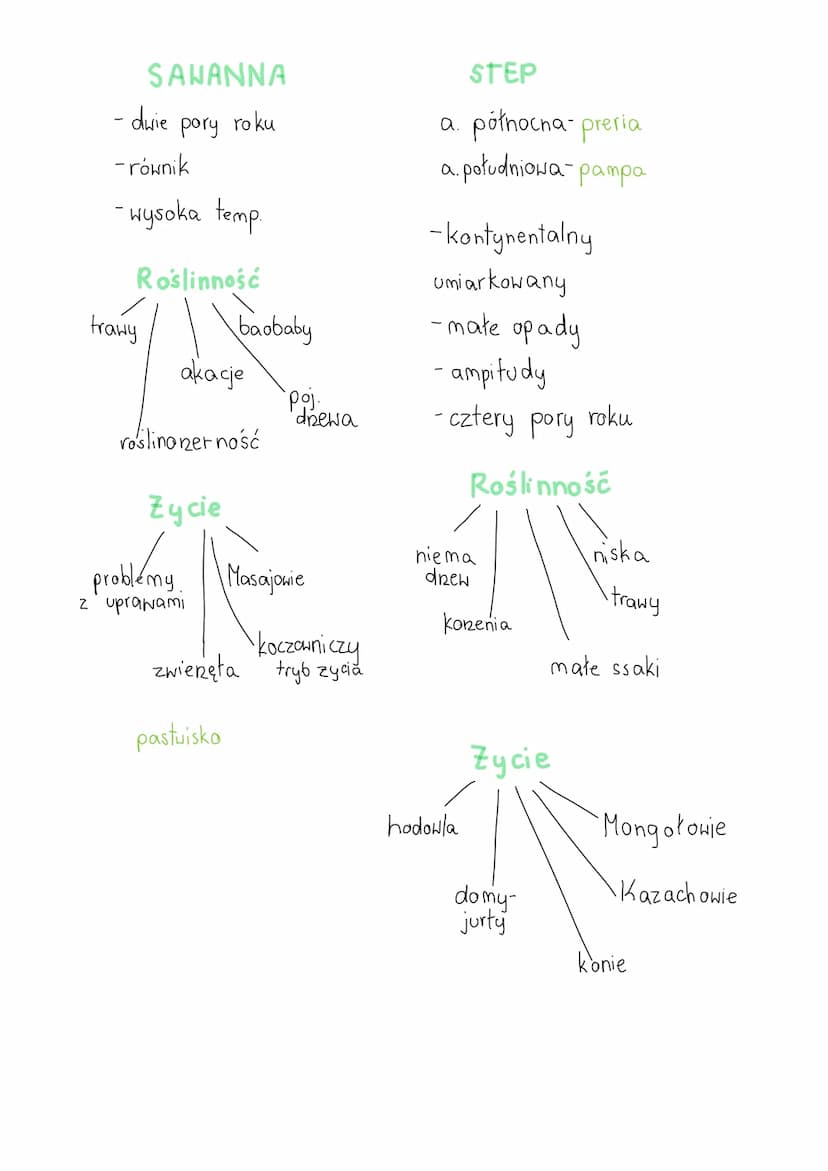 SAWANNA
- dwie pory roku
- równik
- wysoka temp.
Roślinność
trawy
baobaby
akacje
poj.
drzewa
roślinożerność
Życie
problemy
z uprawami
Masajowie
koczowniczy
tryb życia
zwierzęta
pastwisko
STEP
a. północna - preria
a. południowa - pampa
- kontynentalny
umiarkowany
- małe opady
- ampitudy
- cztery pory roku
Roślinność
niema
drzew
niska
trawy
korzenia
małe ssaki
Życie
hodowla
Mongołowie
domy-
jurty
Kazachowie
konie